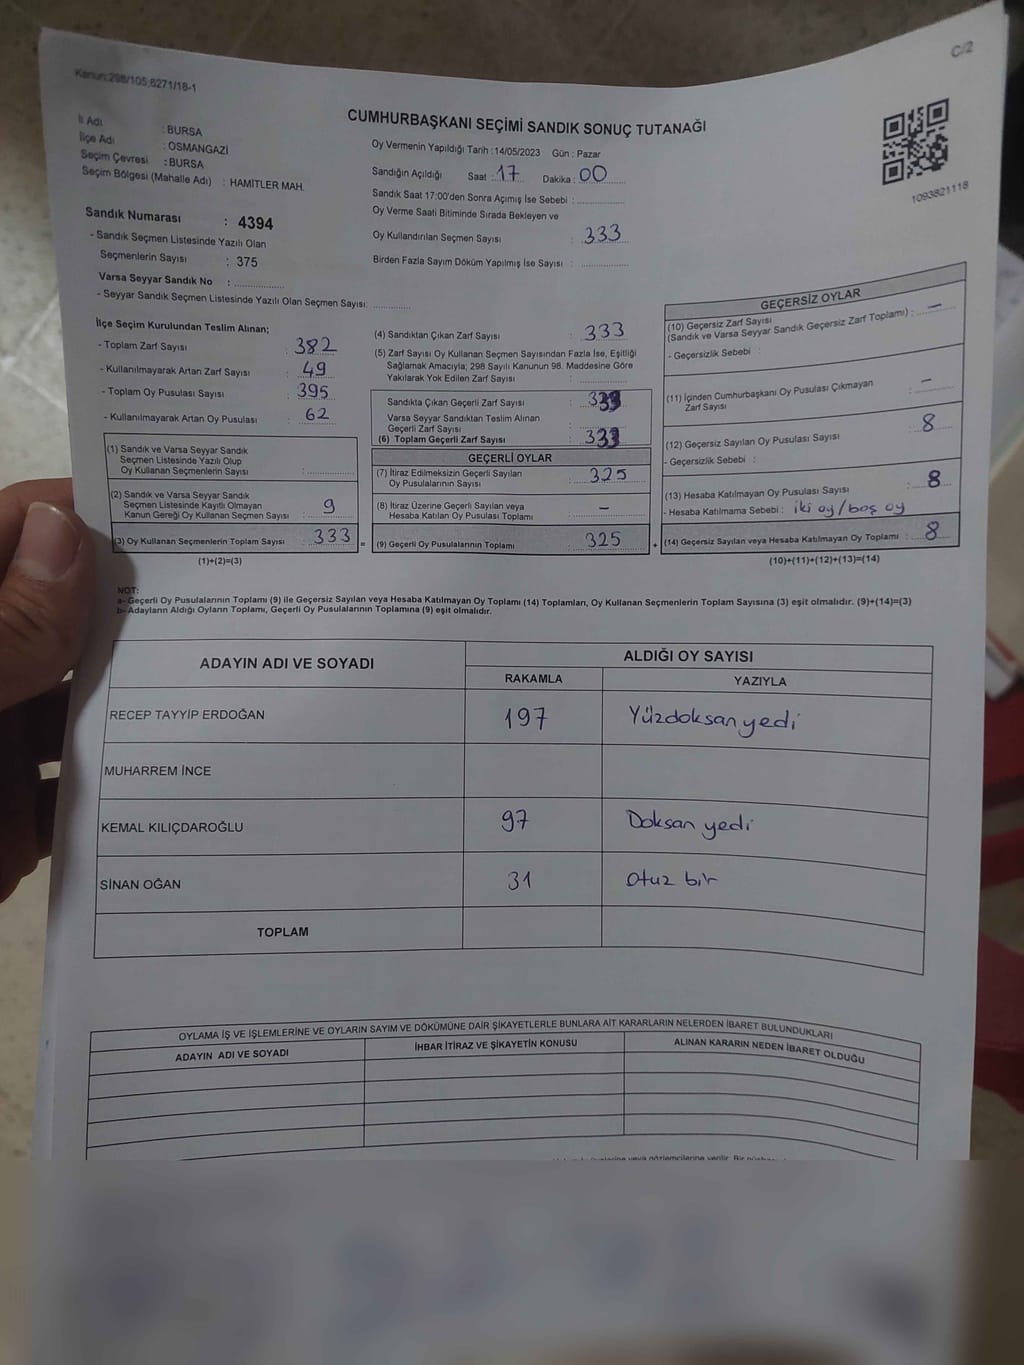 C/2
Kanun:298/105;6271/18-1
CUMHURBAŞKANI SEÇİMİ SANDIK SONUÇ TUTANAĞI
İl Adı : BURSA
İlçe Adı : OSMANGAZİ
Seçim Çevresi : BURSA
Seçim Bölgesi (Mahalle Adı) : HAMİTLER MAH.
Sandık Numarası : 4394
- Sandık Seçmen Listesinde Yazılı Olan
Seçmenlerin Sayısı : 375
Varsa Seyyar Sandık No : ..............
- Seyyar Sandık Seçmen Listesinde Yazılı Olan Seçmen Sayısı: ..........
Oy Vermenin Yapıldığı Tarih :14/05/2023 Gün : Pazar
Sandığın Açıldığı Saat : 17 Dakika : 00
Sandık Saat 17:00'den Sonra Açımış İse Sebebi : ..............
Oy Verme Saati Bitiminde Sırada Bekleyen ve
Oy Kullandırılan Seçmen Sayısı : 333
Birden Fazla Sayım Döküm Yapılmış İse Sayısı : ..............
1093821118
İlçe Seçim Kurulundan Teslim Alınan;
- Toplam Zarf Sayısı : 382
- Kullanılmayarak Artan Zarf Sayısı : 49
- Toplam Oy Pusulası Sayısı : 395
- Kullanılmayarak Artan Oy Pusulası : 62
(1) Sandık ve Varsa Seyyar Sandık
Seçmen Listesinde Yazılı Olup
Oy Kullanan Seçmenlerin Sayısı : ..............
(2) Sandık ve Varsa Seyyar Sandık
Seçmen Listesinde Kayıtlı Olmayan
Kanun Gereği Oy Kullanan Seçmen Sayısı : 9
(3) Oy Kullanan Seçmenlerin Toplam Sayısı : 333 =
(1)+(2)=(3)
(4) Sandıktan Çıkan Zarf Sayısı : 333
(5) Zarf Sayısı Oy Kullanan Seçmen Sayısından Fazla İse, Eşitliği
Sağlamak Amacıyla; 298 Sayılı Kanunun 98. Maddesine Göre
Yakılarak Yok Edilen Zarf Sayısı : ..............
Sandıkta Çıkan Geçerli Zarf Sayısı : 333
Varsa Seyyar Sandıktan Teslim Alınan
Geçerli Zarf Sayısı : ..............
(6) Toplam Geçerli Zarf Sayısı : 333
GEÇERLİ OYLAR
(7) İtiraz Edilmeksizin Geçerli Sayılan
Oy Pusulalarının Sayısı : 325
(8) İtiraz Üzerine Geçerli Sayılan veya
Hesaba Katılan Oy Pusulası Toplamı : –
(9) Geçerli Oy Pusulalarının Toplamı : 325 +
GEÇERSİZ OYLAR
(10) Geçersiz Zarf Sayısı
(Sandık ve Varsa Seyyar Sandık Geçersiz Zarf Toplamı) : –
- Geçersizlik Sebebi :
(11) İçinden Cumhurbaşkanı Oy Pusulası Çıkmayan
Zarf Sayısı : –
(12) Geçersiz Sayılan Oy Pusulası Sayısı : 8
- Geçersizlik Sebebi :
(13) Hesaba Katılmayan Oy Pusulası Sayısı : 8
- Hesaba Katılmama Sebebi : iki oy/boş oy
(14) Geçersiz Sayılan veya Hesaba Katılmayan Oy Toplamı : 8
(10)+(11)+(12)+(13)=(14)
NOT:
a- Geçerli Oy Pusulalarının Toplamı (9) ile Geçersiz Sayılan veya Hesaba Katılmayan Oy Toplamı (14) Toplamları, Oy Kullanan Seçmenlerin Toplam Sayısına (3) eşit olmalıdır. (9)+(14)=(3)
b- Adayların Aldığı Oyların Toplamı, Geçerli Oy Pusulalarının Toplamına (9) eşit olmalıdır.
ADAYIN ADI VE SOYADI ALDIĞI OY SAYISI
RAKAMLA YAZIYLA
RECEP TAYYİP ERDOĞAN 197 Yüzdoksanyedi
MUHARREM İNCE
KEMAL KILIÇDAROĞLU 97 Doksan yedi
SİNAN OĞAN 31 otuz bir
TOPLAM
OYLAMA İŞ VE İŞLEMLERİNE VE OYLARIN SAYIM VE DÖKÜMÜNE DAİR ŞİKAYETLERLE BUNLARA AİT KARARLARIN NELERDEN İBARET BULUNDUKLARI
ADAYIN ADI VE SOYADI İHBAR İTİRAZ VE ŞİKAYETİN KONUSU ALINAN KARARIN NEDEN İBARET OLDUĞU